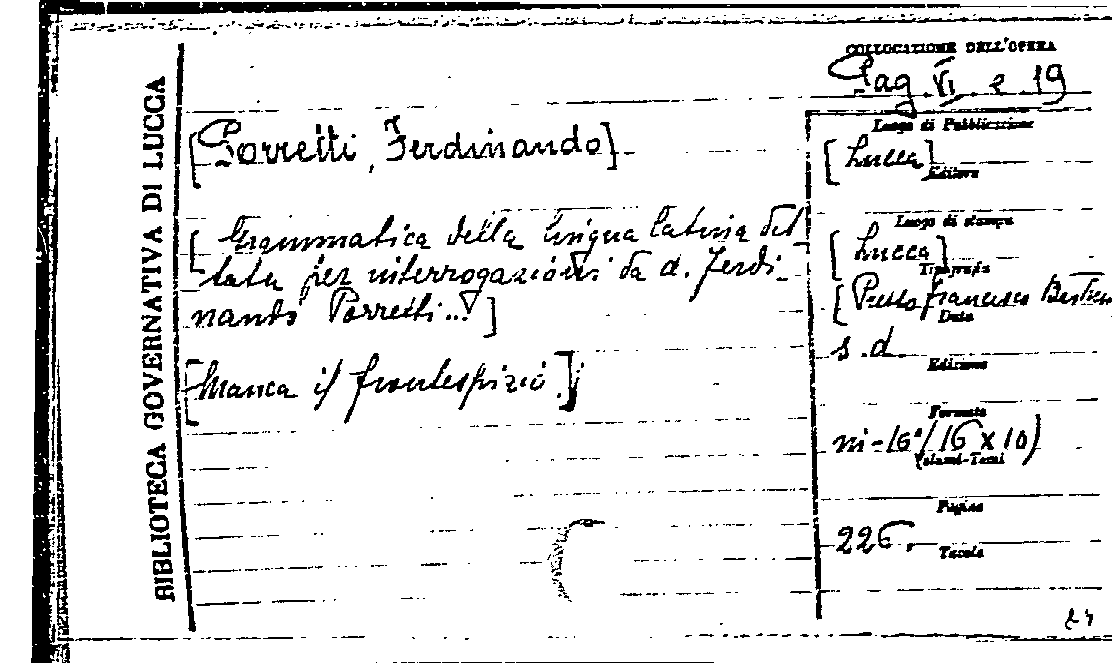 BIBLIOTECA GOVERNATIVA DI LUCCA
COLLOCAZIONE DELL'OPERA
Pag. VI. e 19
[Porretti, Ferdinando].
[Grammatica della lingua latina det
tata per interrogazioni da d. Ferdi-
nando Porretti...]
[Manca il frontespizio.]
Luogo di Pubblicazione
[Lucca]
Editore
Luogo di stampa
[Lucca]
Tipografia
[Presso Francesco
Data
s.d.
Edizione
Formato
in-16° (16 x 10)
Volumi-Tomi
Pagine
226.
Tavole